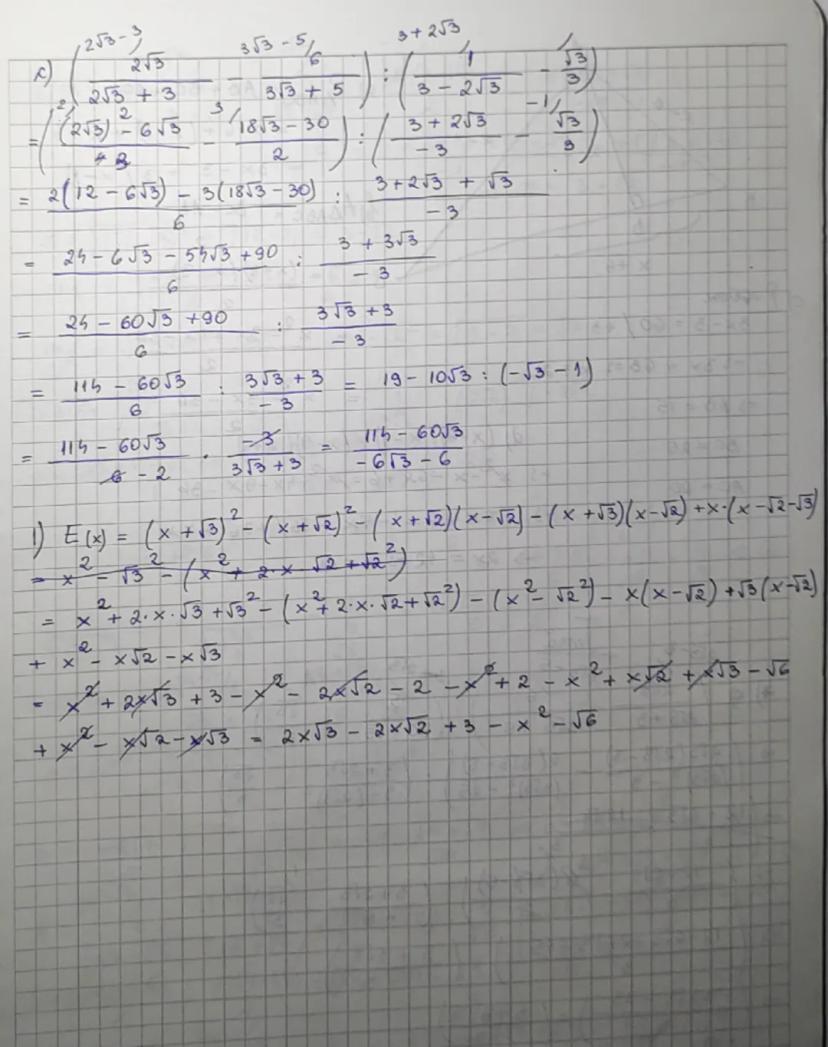 2√3 - 3 3√3 - 5 3 + 2√3
c) (2√3/(2√3 + 3) - 6/(3√3 + 5)) : (1/(3 - 2√3) - √3/3)
= (((2√3)² - 6√3)/3 - (18√3 - 30)/2) : ((3 + 2√3)/(-3) - √3/3)
= (2(12 - 6√3) - 3(18√3 - 30))/6 : (3 + 2√3 + √3)/(-3)
= (24 - 6√3 - 54√3 + 90)/6 : (3 + 3√3)/(-3)
= (24 - 60√3 + 90)/6 : (3√3 + 3)/(-3)
= (114 - 60√3)/6 : (3√3 + 3)/(-3) = 19 - 10√3 : (-√3 - 1)
= (114 - 60√3)/(6 - 2) · (-3)/(3√3 + 3) = (114 - 60√3)/(-6√3 - 6)
1) E(x) = (x + √3)² - (x + √2)² - (x + √2)(x - √2) - (x + √3)(x - √2) + x·(x - √2 - √3)
= x² - √3² - (x² + 2·x √2 + √2²)
= x² + 2·x·√3 + √3² - (x² + 2·x·√2 + √2²) - (x² - √2²) - x(x - √2) + √3(x - √2)
+ x² - x√2 - x√3
= x² + 2x√3 + 3 - x² - 2x√2 - 2 - x² + 2 - x² + x√2 + x√3 - √6
+ x² - x√2 - x√3 = 2x√3 - 2x√2 + 3 - x² - √6